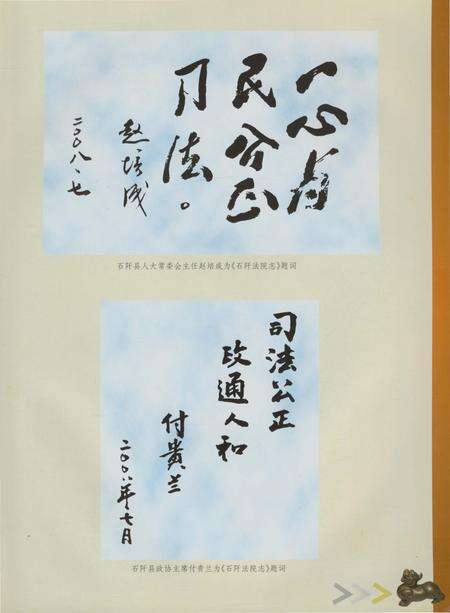 一心为
民公正
司法。
赵培成
二〇〇八、七
石阡县人大常委会主任赵培成为《石阡法院志》题词
司法公正
政通人和
付贵兰
二〇〇八年七月
石阡县政协主席付贵兰为《石阡法院志》题词